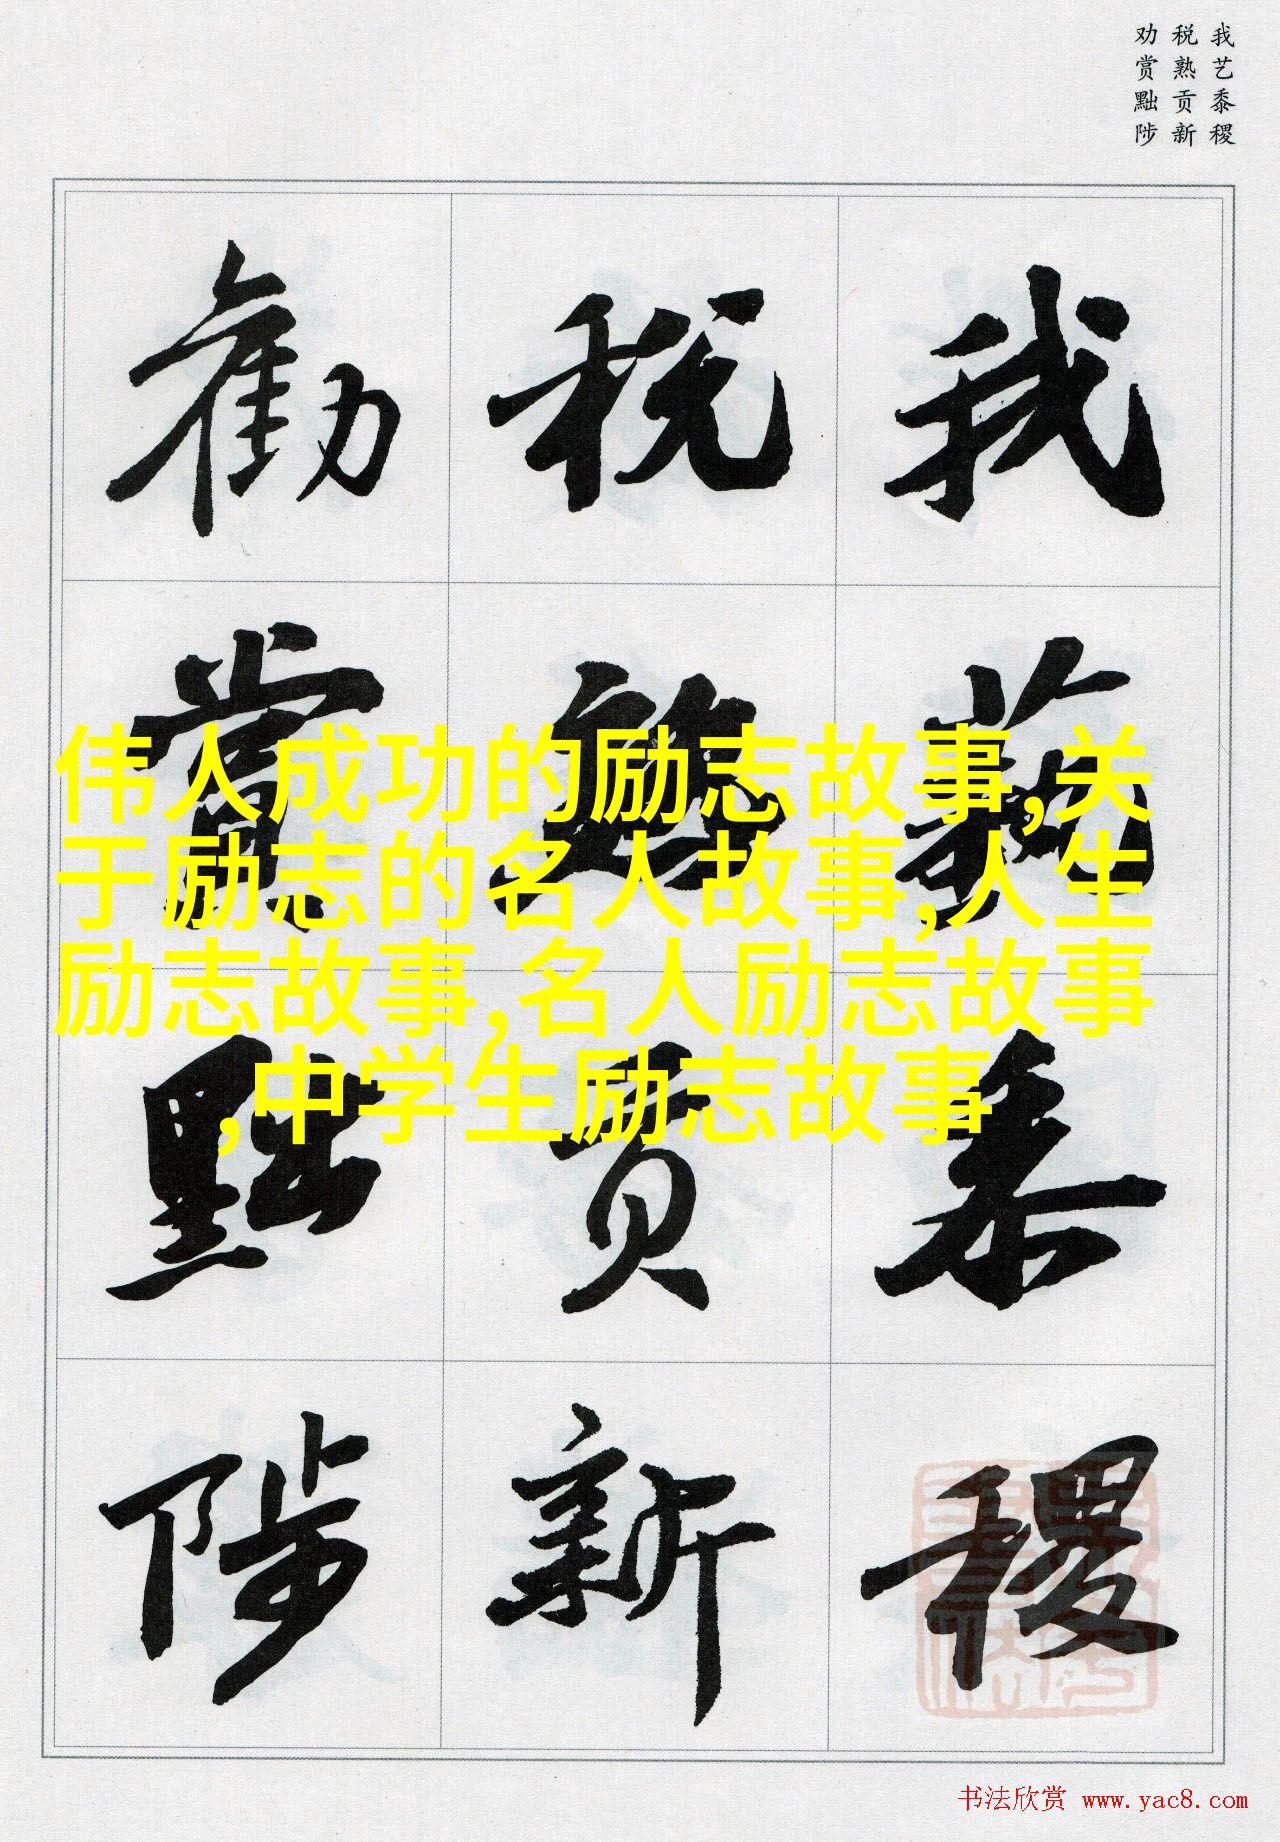 我艺黍稷
税熟贡新
劝赏黜陟
我藝黍稷
稅熟貢新
勸賞黜陟
伟人成功的励志故事,关
于励志的名人故事,人生
励志故事,名人励志故事
,中学生励志故事
书法欣赏 www.yac8.com